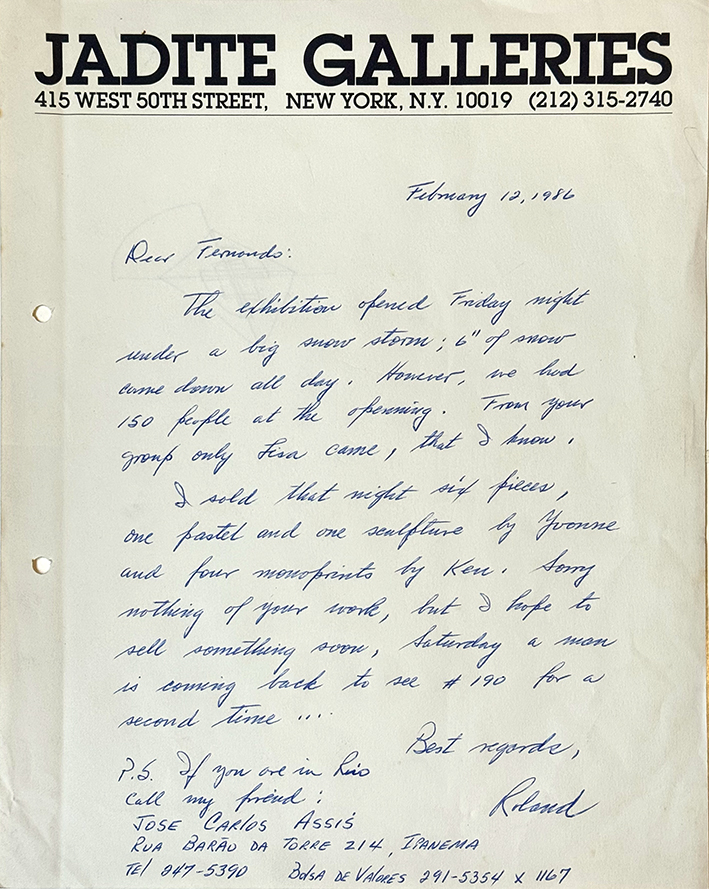 JADITE GALLERIES
415 WEST 50TH STREET, NEW YORK, N.Y. 10019 (212) 315-2740
February 12, 1986
Dear Fernando:
The exhibition opened Friday night
under a big snow storm; 6" of snow
came down all day. However, we had
150 people at the openning. From your
group only Lisa came, that I know.
I sold that night six pieces,
one pastel and one sculpture by Yvonne
and four monoprints by Ken. Sorry
nothing of your work, but I hope to
sell something soon, Saturday a man
is coming back to see # 190 for a
second time ....
Best regards,
Roland
P.S. If you are in Rio
call my friend:
JOSE CARLOS ASSIS
RUA BARÃO DA TORRE 214, IPANEMA
TEl 247-5390 BOlSA DE VALORES 291-5354 x 1167